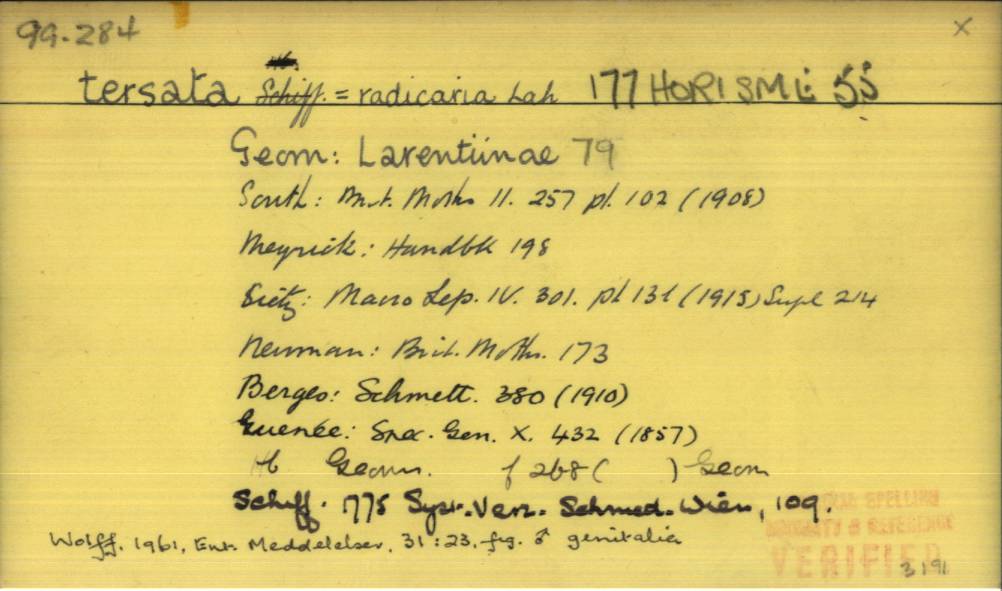 99.284 X
tersata Schiff. = radicaria Lah 177 HORISME 55
Geom: Larentiinae 79
South: Brit. Moths II. 257 pl. 102 (1908)
Meyrick: Handbk 198
Seitz: Macro Lep. IV. 301. pl 13 (1915) Supl 214
Newman: Brit. Moths. 173
Berges: Schmett. 380 (1910)
Guenée: Spec. Gen. X. 432 (1857)
Hb Geom. f 268 ( ) Geom
Schiff. 1775 Syst. Verz. Schmed. Wien, 109.
Wolff, 1961, Ent. Meddelelser, 31:23, fig. ♂ genitalia
SPELLING
& REFERENCE
VERIFIED